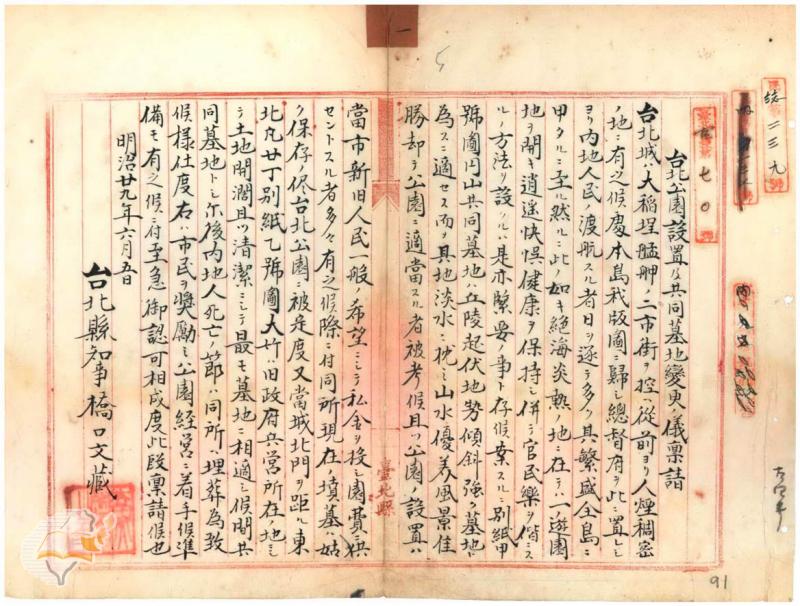 台北公園設置及共同墓地変更ノ儀稟請
台北城ハ大稲埕艋舺ノ二市街ヲ控ヘ従前ヨリ人煙稠密
ノ地ニ有之候處本島我版圖ニ歸シ総督府ヲ此ニ置レシ
ヨリ内地人民渡航スル者日ヲ逐テ多ク其繁盛全島ニ
甲タルニ至ル然ルニ此ノ如キ絶海炎熱ノ地ニ在テハ一ノ遊園
地ヲ開キ逍遥快悞健康ヲ保持シ併テ官民樂ヲ偕ニス
ルノ方法ヲ設クルハ是亦緊要ノ事ト存候案スルニ別紙甲
號圖円山共同墓地ハ丘陵起伏地勢傾斜強チ墓地ト
為スニ適セス而シテ其地淡水ニ枕ミ山水優美風景佳
勝却テ公園ニ適當スル者被考候且ツ公園ノ設置ハ
當市新旧人民一般ノ希望ニシテ私金ヲ投シ園費ニ供
セントスル者多々有之候際ニ付同所現在ノ墳墓ハ姑
ク保存ノ侭台北公園ニ被定度又當城北門ヲ距ル東
北凡廿丁別紙乙號圖大竹ハ旧政府兵営所在ノ地ニシ
テ土地開濶且ツ清潔ニシテ最モ墓地ニ相適シ候間共
同墓地トシ尓後内地人死亡ノ節ハ同所ヘ埋葬為致
候様仕度右ハ市民ヲ奬勵シ公園経営ニ着手候準
備モ有之候ニ付至急御認可相成度此段稟請候也
明治廿九年六月五日
台北縣知事橋口文藏
臺北縣
七〇
二三九
91